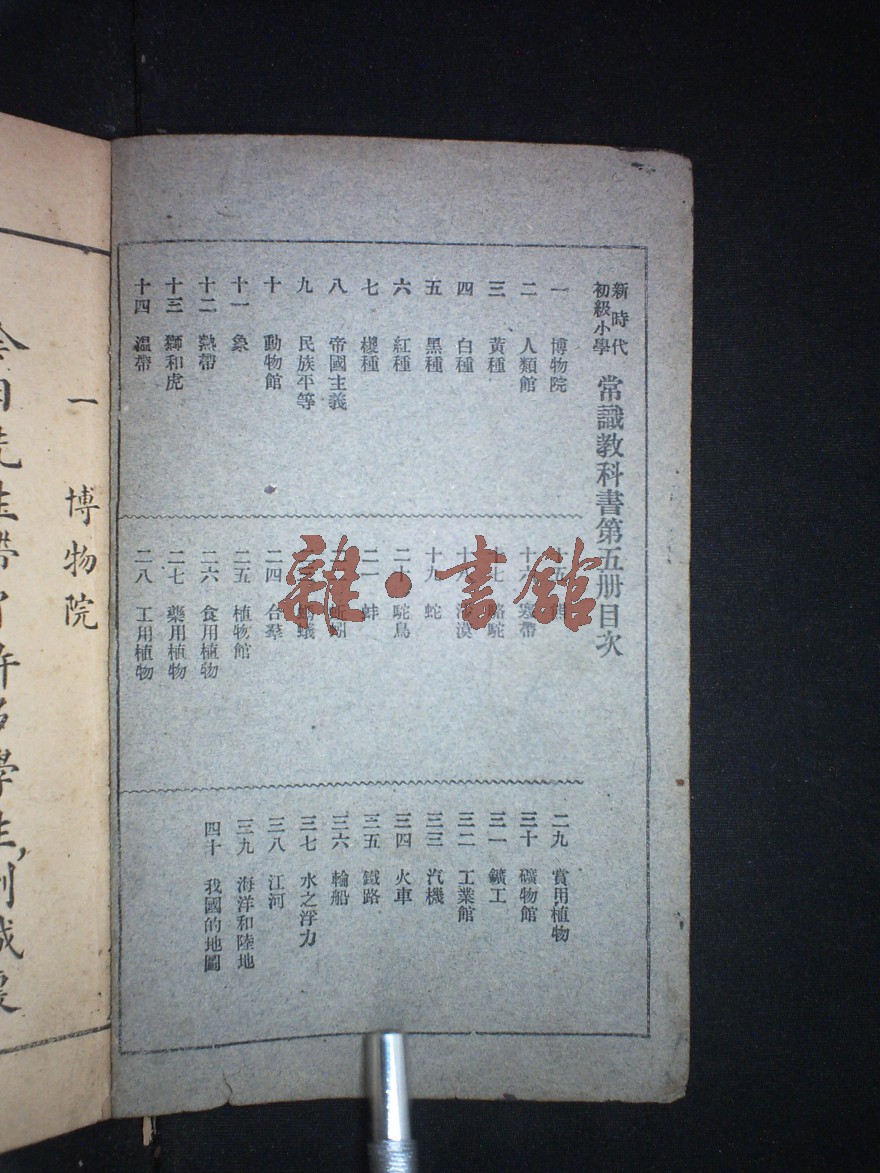 新時代
初級小學
常識教科書第五册目次
一 博物院
二 人類館
三 黃種
四 白種
五 黑種
六 紅種
七 椶種
八 帝國主義
九 民族平等
十 動物館
十一 象
十二 熱帶
十三 獅和虎
十四 溫帶
十六 寒帶
十九 蛇
二十 鴕鳥
二一 蚌
二四 合羣
二五 植物館
二六 食用植物
二七 藥用植物
二八 工用植物
二九 賞用植物
三十 礦物館
三一 鑛工
三二 工業館
三三 汽機
三四 火車
三五 鐵路
三六 輪船
三七 水之浮力
三八 江河
三九 海洋和陸地
四十 我國的地圖
雜·書館
一 博物院